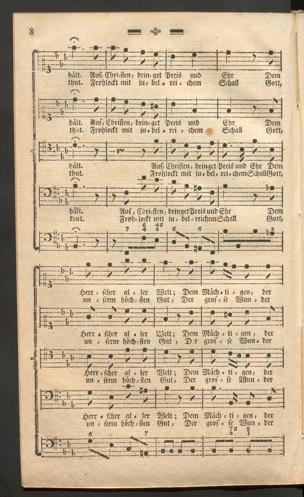 8
hält. Auf, Christen, bringet Preis und Ehr Dem
thut. Frohlockt mit ju- bel- rei- chem Schall Gott,
hält. Auf, Christen, bringet Preis und Ehr Dem
thut. Frohlockt mit ju- bel- rei- chem Schall Gott,
hält. Auf, Christen, bringet Preis und Ehr Dem
thut. Frohlockt mit ju- bel- rei- chem Schall Gott,
hält. Auf, Christen, bringet Preis und Ehr Dem
thut. Froh- lockt mit ju- bel- reichem Schall Gott,
Herr- scher al- ler Welt; Dem Mäch- ti- gen, der
un- serm höch- sten Gut, Der gros- se Wun- der
Herr- scher al- ler Welt; Dem Mäch- ti- gen, der
un- serm höch- sten Gut, Der gros- se Wun- der
Herr- scher al- ler Welt; Dem Mäch- ti- gen, der
un- serm höch- sten Gut, Der gros- se Wun- der
Herr- scher al- ler Welt; Dem Mäch- ti- gen, der
un- serm höch- sten Gut, Der gros- se Wun- der